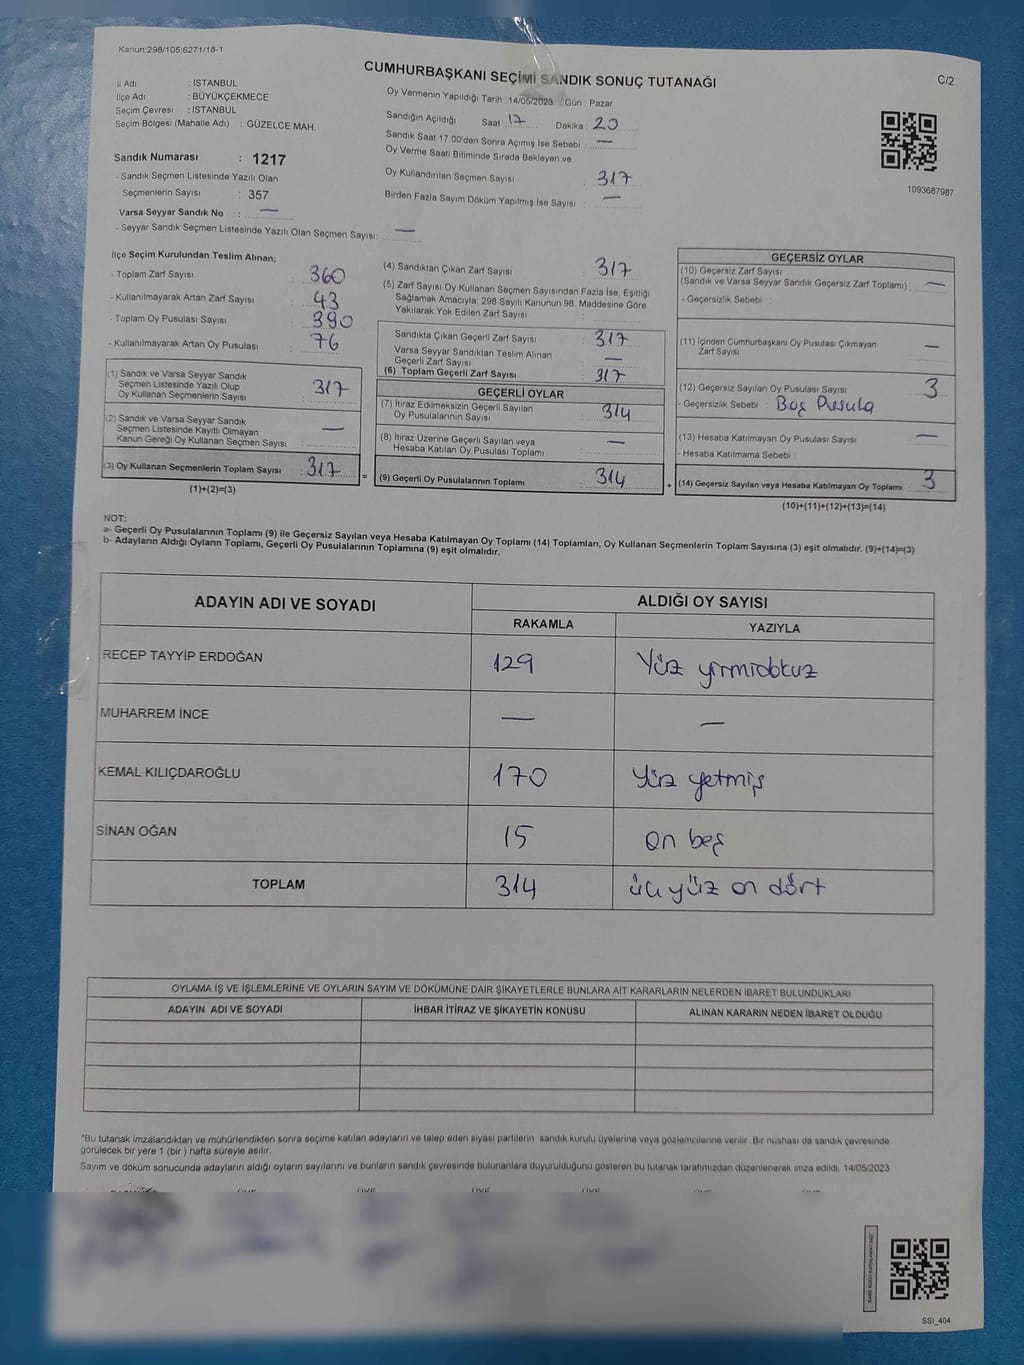 Kanun;298/105;6271/18-1
CUMHURBAŞKANI SEÇİMİ SANDIK SONUÇ TUTANAĞI
C/2
İl Adı : İSTANBUL
İlçe Adı : BÜYÜKÇEKMECE
Seçim Çevresi : İSTANBUL
Seçim Bölgesi (Mahalle Adı) : GÜZELCE MAH.
Sandık Numarası : 1217
- Sandık Seçmen Listesinde Yazılı Olan
Seçmenlerin Sayısı : 357
Varsa Seyyar Sandık No : —
- Seyyar Sandık Seçmen Listesinde Yazılı Olan Seçmen Sayısı: —
Oy Vermenin Yapıldığı Tarih : 14/05/2023 Gün : Pazar
Sandığın Açıldığı Saat 17 Dakika 20
Sandık Saat 17:00'den Sonra Açımış İse Sebebi : —
Oy Verme Saati Bitiminde Sırada Bekleyen ve
Oy Kullandırılan Seçmen Sayısı : 317
Birden Fazla Sayım Döküm Yapılmış İse Sayısı : —
1093687987
İlçe Seçim Kurulundan Teslim Alınan;
- Toplam Zarf Sayısı : 360
- Kullanılmayarak Artan Zarf Sayısı : 43
- Toplam Oy Pusulası Sayısı : 390
- Kullanılmayarak Artan Oy Pusulası : 76
(1) Sandık ve Varsa Seyyar Sandık
Seçmen Listesinde Yazılı Olup
Oy Kullanan Seçmenlerin Sayısı : 317
(2) Sandık ve Varsa Seyyar Sandık
Seçmen Listesinde Kayıtlı Olmayan
Kanun Gereği Oy Kullanan Seçmen Sayısı : —
(3) Oy Kullanan Seçmenlerin Toplam Sayısı : 317 =
(1)+(2)=(3)
(4) Sandıktan Çıkan Zarf Sayısı : 317
(5) Zarf Sayısı Oy Kullanan Seçmen Sayısından Fazla İse, Eşitliği
Sağlamak Amacıyla, 298 Sayılı Kanunun 98. Maddesine Göre
Yakılarak Yok Edilen Zarf Sayısı :
Sandıkta Çıkan Geçerli Zarf Sayısı : 317
Varsa Seyyar Sandıktan Teslim Alınan
Geçerli Zarf Sayısı : —
(6) Toplam Geçerli Zarf Sayısı : 317
GEÇERLİ OYLAR
(7) İtiraz Edilmeksizin Geçerli Sayılan
Oy Pusulalarının Sayısı : 314
(8) İtiraz Üzerine Geçerli Sayılan veya
Hesaba Katılan Oy Pusulası Toplamı : —
(9) Geçerli Oy Pusulalarının Toplamı : 314 +
GEÇERSİZ OYLAR
(10) Geçersiz Zarf Sayısı
(Sandık ve Varsa Seyyar Sandık Geçersiz Zarf Toplamı) : —
- Geçersizlik Sebebi :
(11) İçinden Cumhurbaşkanı Oy Pusulası Çıkmayan
Zarf Sayısı : —
(12) Geçersiz Sayılan Oy Pusulası Sayısı : 3
- Geçersizlik Sebebi : Boş Pusula
(13) Hesaba Katılmayan Oy Pusulası Sayısı : —
- Hesaba Katılmama Sebebi :
(14) Geçersiz Sayılan veya Hesaba Katılmayan Oy Toplamı : 3
(10)+(11)+(12)+(13)=(14)
NOT:
a- Geçerli Oy Pusulalarının Toplamı (9) ile Geçersiz Sayılan veya Hesaba Katılmayan Oy Toplamı (14) Toplamları, Oy Kullanan Seçmenlerin Toplam Sayısına (3) eşit olmalıdır. (9)+(14)=(3)
b- Adayların Aldığı Oyların Toplamı, Geçerli Oy Pusulalarının Toplamına (9) eşit olmalıdır.
ADAYIN ADI VE SOYADI ALDIĞI OY SAYISI
RAKAMLA YAZIYLA
RECEP TAYYİP ERDOĞAN 129 Yüz yirmidokuz
MUHARREM İNCE — —
KEMAL KILIÇDAROĞLU 170 Yüz yetmiş
SİNAN OĞAN 15 on beş
TOPLAM 314 üç yüz on dört
OYLAMA İŞ VE İŞLEMLERİNE VE OYLARIN SAYIM VE DÖKÜMÜNE DAİR ŞİKAYETLERLE BUNLARA AİT KARARLARIN NELERDEN İBARET BULUNDUKLARI
ADAYIN ADI VE SOYADI İHBAR İTİRAZ VE ŞİKAYETİN KONUSU ALINAN KARARIN NEDEN İBARET OLDUĞU
*Bu tutanak imzalandıktan ve mühürlendikten sonra seçime katılan adayların ve talep eden siyasi partilerin sandık kurulu üyelerine veya gözlemcilerine verilir. Bir nüshası da sandık çevresinde
görülecek bir yere 1 (bir ) hafta süreyle asılır.
Sayım ve döküm sonucunda adayların aldığı oyların sayılarını ve bunların sandık çevresinde bulunanlara duyurulduğunu gösteren bu tutanak tarafımızdan düzenlenerek imza edildi. 14/05/2023
ÜYE ÜYE ÜYE ÜYE ÜYE ÜYE
SSI_404